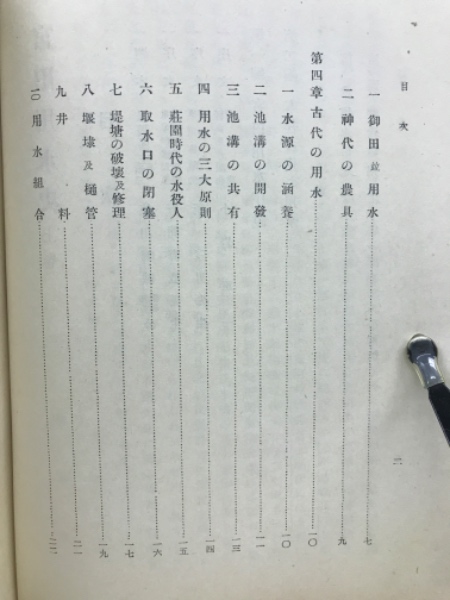 目次
一 御田並用水……七
二 神代の農具……九
第四章 古代の用水……一〇
一 水源の涵養……一〇
二 池溝の開發……一一
三 池溝の共有……一三
四 用水の三大原則……一四
五 莊園時代の水役人……一五
六 取水口の閉塞……一六
七 堤塘の破壞及修理……一七
八 堰埭及樋管……一九
九 井料……二一
一〇 用水組合……二二
二